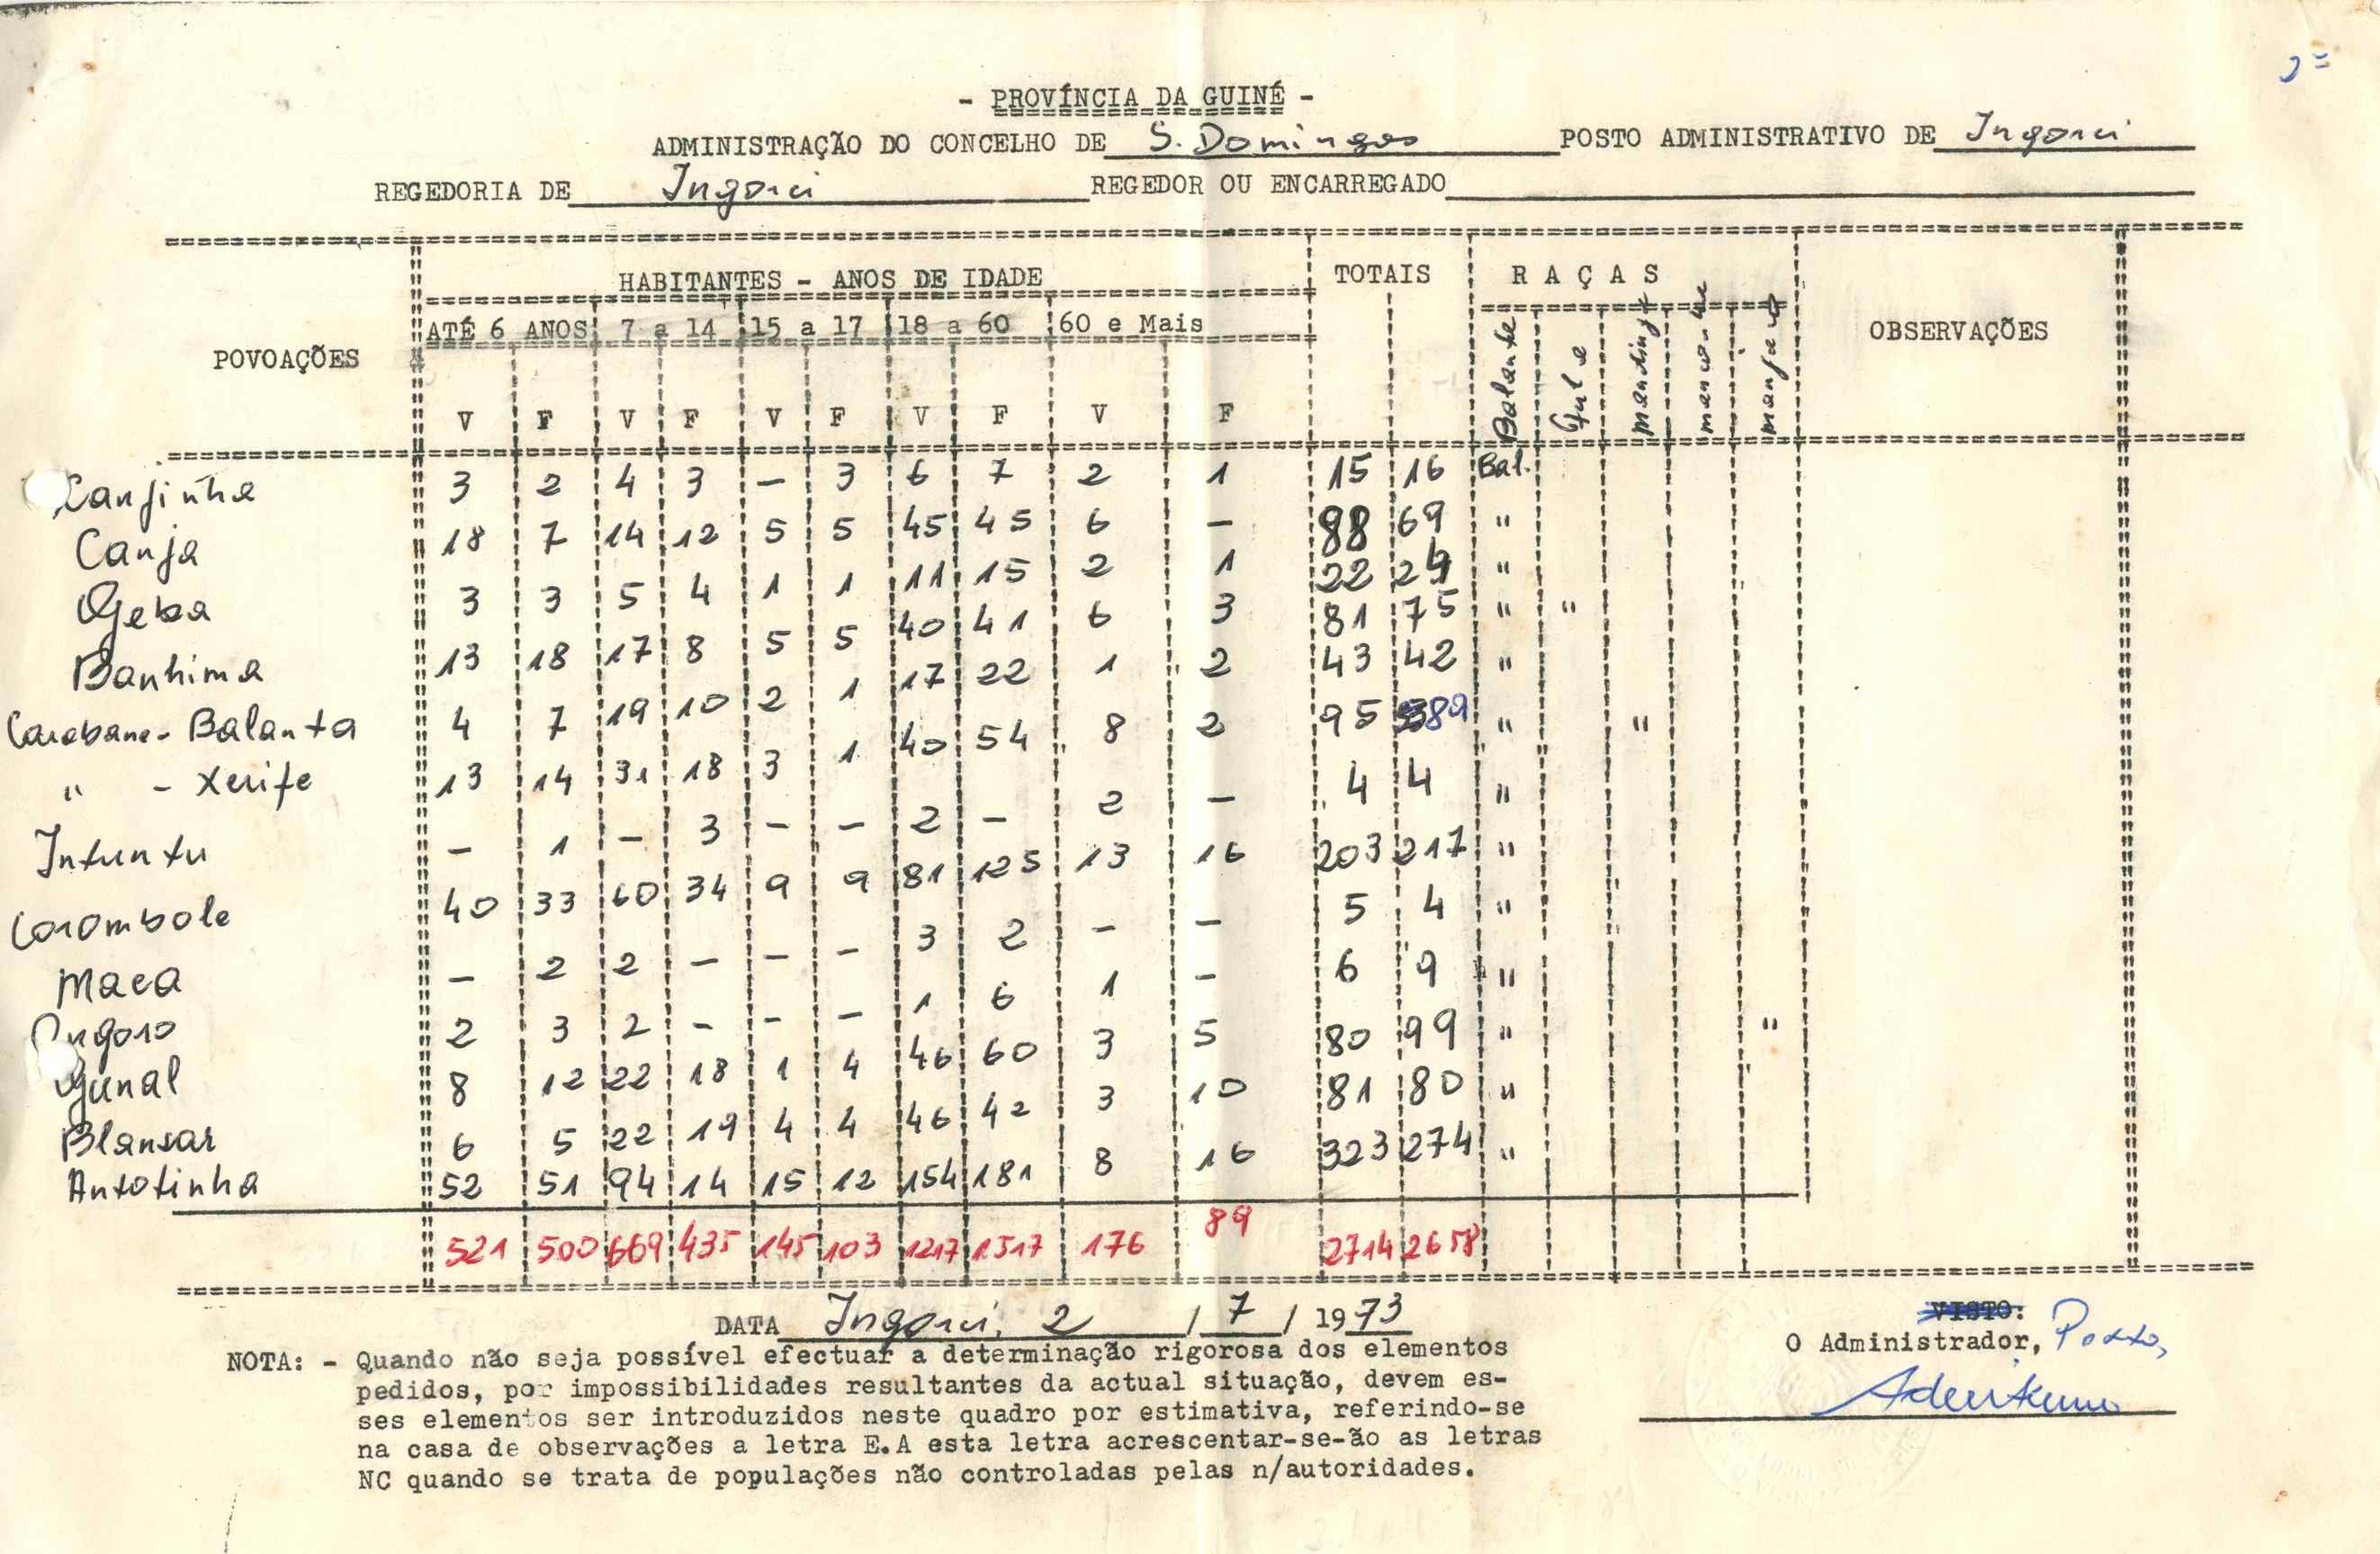 2=
- PROVÍNCIA DA GUINÉ -
ADMINISTRAÇÃO DO CONCELHO DE S. Domingos POSTO ADMINISTRATIVO DE Ingorei
REGEDORIA DE Ingorei REGEDOR OU ENCARREGADO
HABITANTES - ANOS DE IDADE TOTAIS RAÇAS
POVOAÇÕES ATÉ 6 ANOS 7 a 14 15 a 17 18 a 60 60 e Mais OBSERVAÇÕES
V F V F V F V F V F Balante Fula manding
Canjinha 3 2 4 3 - 3 6 7 2 1 15 16 Bal.
Canja 18 7 14 12 5 5 45 45 6 - 88 69 "
Geba 3 3 5 4 1 1 11 15 2 1 22 24 "
Banhima 13 18 17 8 5 5 40 41 6 3 81 75 " "
Carabane - Balanta 4 7 19 10 2 1 17 22 1 2 43 42 "
" - Xerife 13 14 31 18 3 1 40 54 8 2 95 89 " "
Intuntu - 1 - 3 - - 2 - 2 - 4 4 "
Corombole 40 33 60 34 9 9 81 125 13 16 203 217 "
Maca - 2 2 - - - 3 2 - - 5 4 "
Ongoro 2 3 2 - - - 1 6 1 - 6 9 "
Gunal 8 12 22 18 1 4 46 60 3 5 80 99 " "
Blansar 6 5 22 19 4 4 46 42 3 10 81 80 "
Antotinha 52 51 94 14 15 12 154 181 8 16 323 274 "
521 500 669 435 145 103 1217 1517 176 89 2714 2658
DATA Ingorei, 2 / 7 / 1973
VISTO:
O Administrador, Posto,
NOTA: - Quando não seja possível efectuar a determinação rigorosa dos elementos
pedidos, por impossibilidades resultantes da actual situação, devem es-
ses elementos ser introduzidos neste quadro por estimativa, referindo-se
na casa de observações a letra E.A esta letra acrescentar-se-ão as letras
NC quando se trata de populações não controladas pelas n/autoridades.